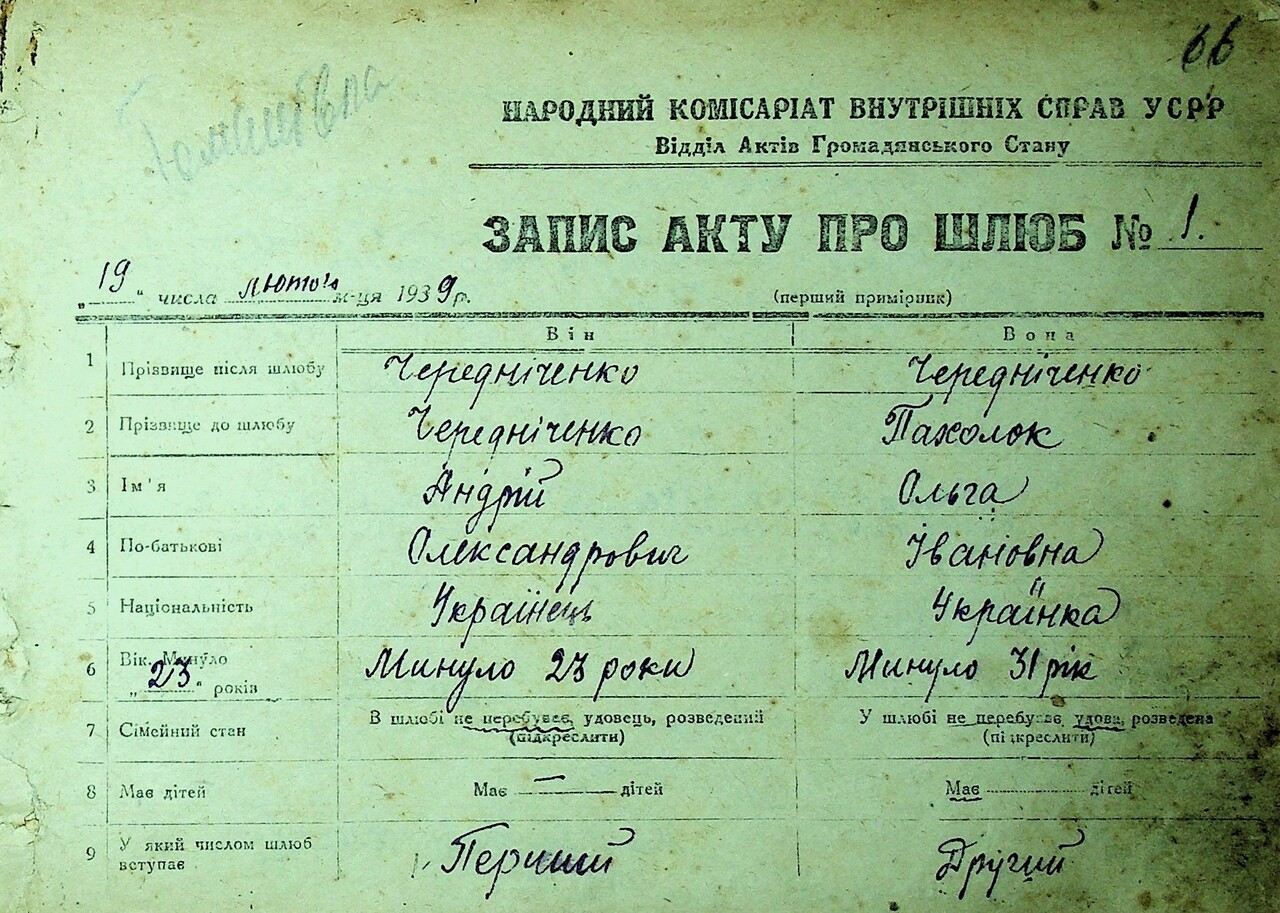 66
НАРОДНИЙ КОМІСАРІАТ ВНУТРІШНІХ СПРАВ УСРР
Відділ Актів Громадянського Стану
ЗАПИС АКТУ ПРО ШЛЮБ № 1.
„19“ числа лютого м-ця 1939 р. (перший примірник)
Він Вона
1 Прізвище після шлюбу Чередніченко Чередніченко
2 Прізвище до шлюбу Чередніченко Пахолок
3 Ім'я Андрій Ольга
4 По-батькові Олександрович Івановна
5 Національність Українець Українка
6 Вік. Минуло Минуло 23 роки Минуло 31 рік
„23“ років
7 Сімейний стан В шлюбі не перебував, удовець, розведений У шлюбі не перебував, удова, розведена
(підкреслити) (підкреслити)
8 Має дітей Має — дітей Має дітей
9 У який числом шлюб Перший Другий
вступає